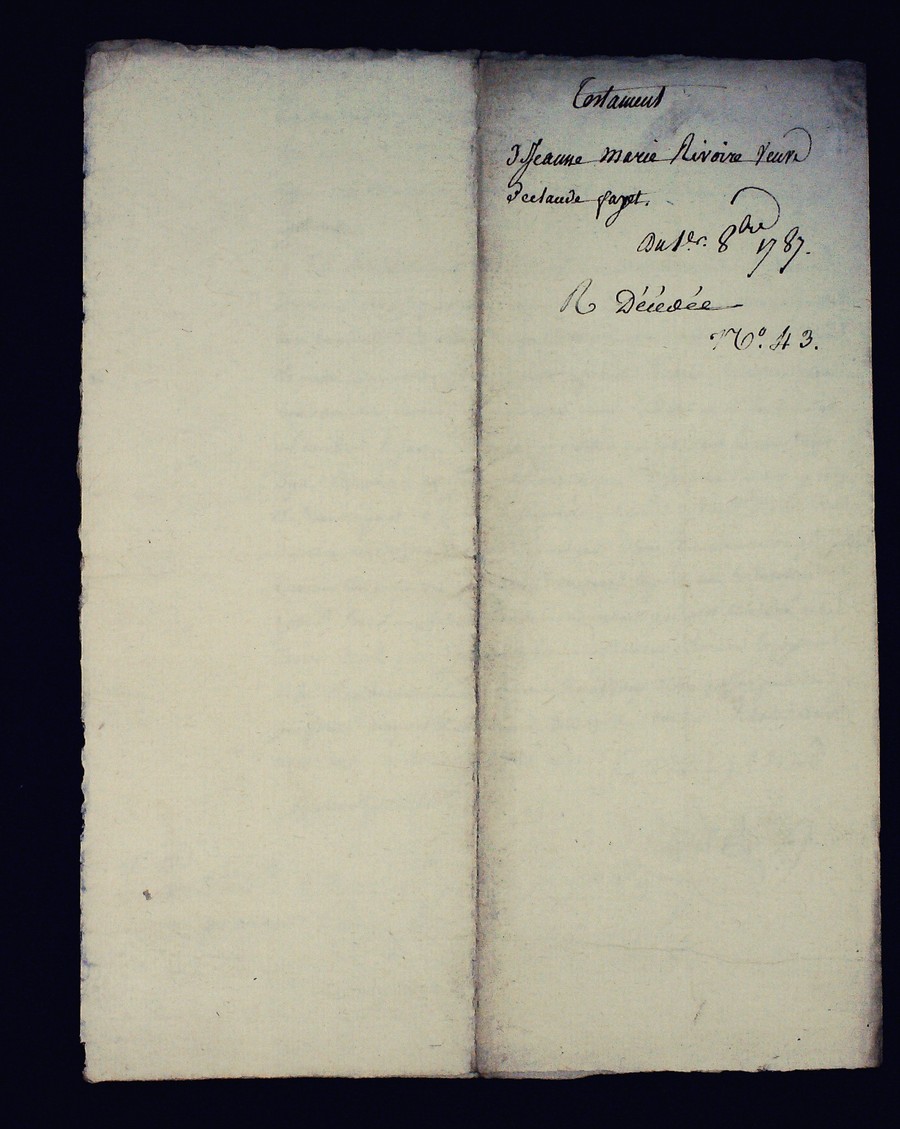 Testament
De Jeanne Marie Rivoire Veuve
De claude fayet.
Du 1er. 8bre 1787.
R Décédée
No. 43.